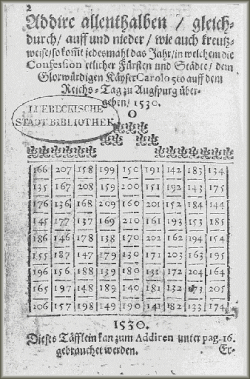 2
Addire allenthalben / gleich-
durch / auff und nieder / wie auch kreutz-
weise so komt jedesmahl das Jahr / in welchem die
Confession etlicher Fürsten und Städte / dem
Glorwürdigen Käyser Carolo 5to auff dem
Reichs-Tag zu Augspurg über-
geben / 1530.
LUEBECKISCHE
STADTBIBLIOTHEK
166 207 158 199 150 191 142 183 134
135 167 208 159 200 151 192 143 175
176 136 168 209 160 201 152 184 144
145 177 137 169 210 161 193 153 185
186 146 178 138 170 202 162 194 154
155 187 147 179 130 171 203 163 195
196 156 188 139 180 131 172 204 164
165 197 148 189 140 181 132 173 205
206 157 198 149 190 141 182 133 174
1530.
Dieses Täfflein kan zum Addiren unter pag. 16.
gebrauchet werden. Er-